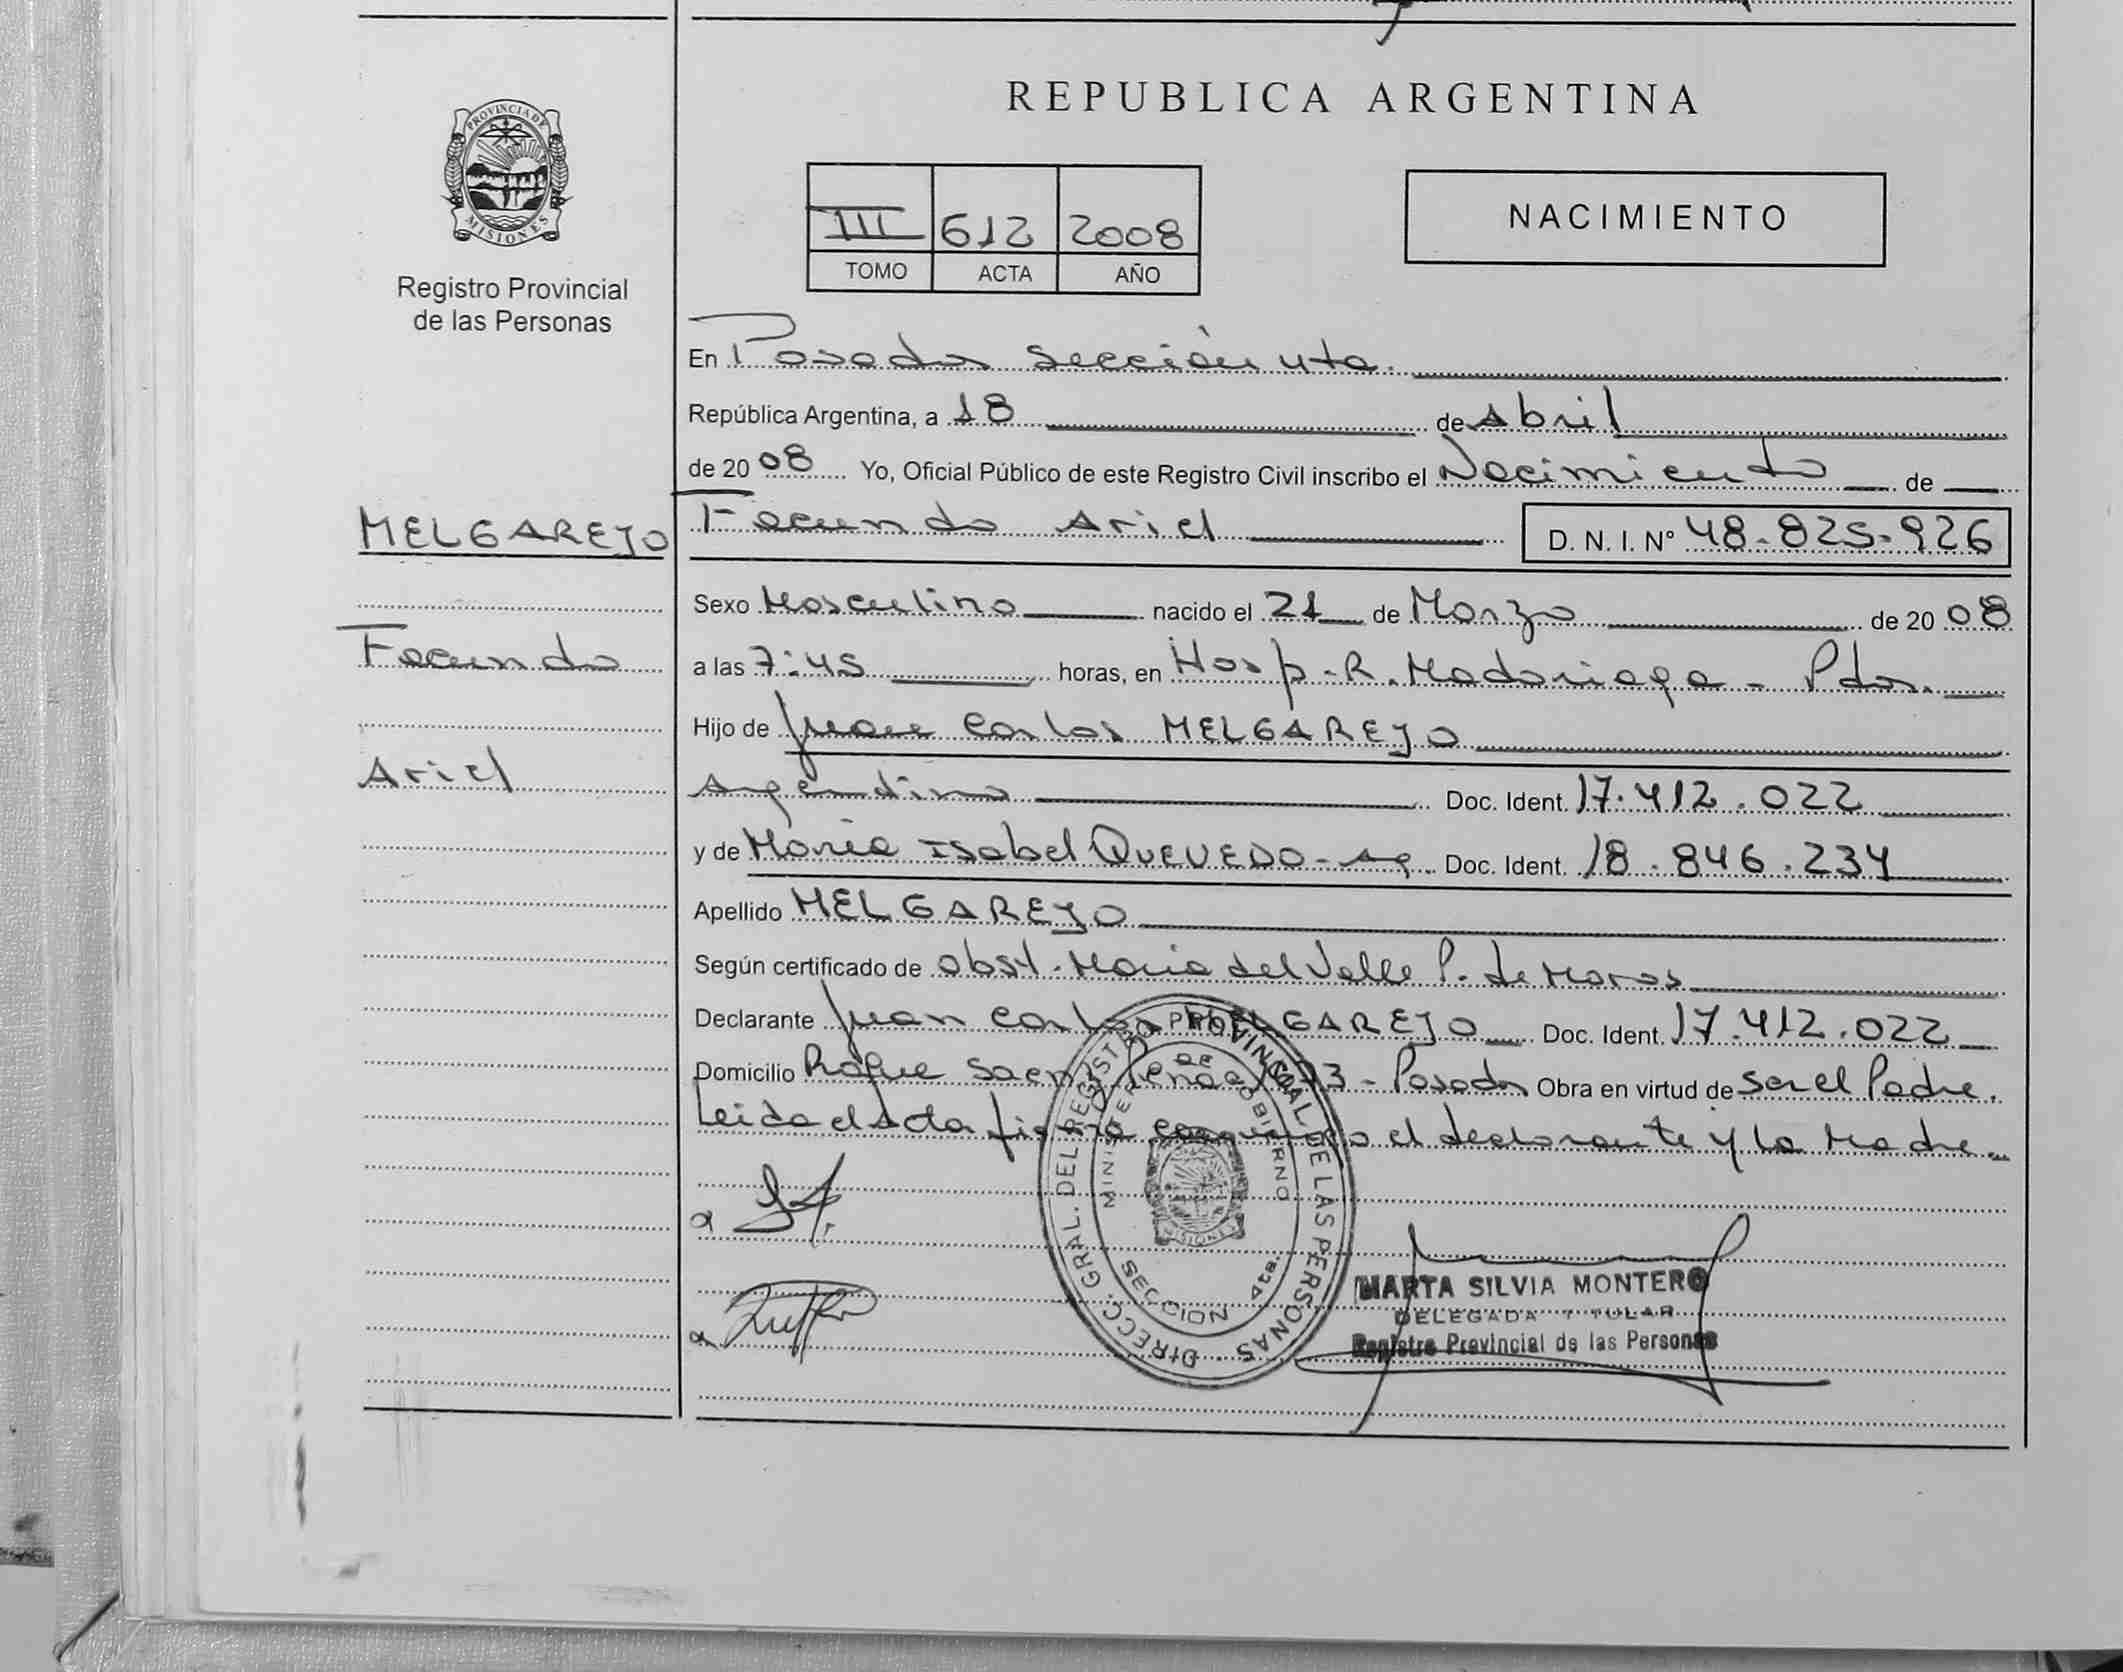 REPUBLICA ARGENTINA
PROVINCIA DE
MISIONES
Registro Provincial
de las Personas
III 612 2008
TOMO ACTA AÑO
NACIMIENTO
En Posadas Sección 4ta.
República Argentina, a 18 de Abril
de 2008 Yo, Oficial Público de este Registro Civil inscribo el Nacimiento de
MELGAREJO
Facundo Ariel D. N. I. Nº 48.825.926
Sexo Masculino nacido el 21 de Marzo de 2008
Facundo
a las 7:45 horas, en Hosp. R. Madariaga - Pdas.
Hijo de Juan Carlos MELGAREJO
Ariel
Argentino Doc. Ident. 17.412.022
y de María Isabel QUEVEDO - Arg. Doc. Ident. 18.846.234
Apellido MELGAREJO
Según certificado de Obst. María del Valle P. de Maros
Declarante Juan Carlos MELGAREJO Doc. Ident. 17.412.022
Domicilio Roque Saenz Peña - Posadas Obra en virtud de ser el Padre.
Leida el Acta firma el declarante y la Madre
DIRECC. GRAL. DEL REGISTRO PROVINCIAL DE LAS PERSONAS
MINISTERIO DE GOBIERNO
MISIONES
SECCION 4ta.
MARTA SILVIA MONTERO
DELEGADA TITULAR
Registro Provincial de las Personas